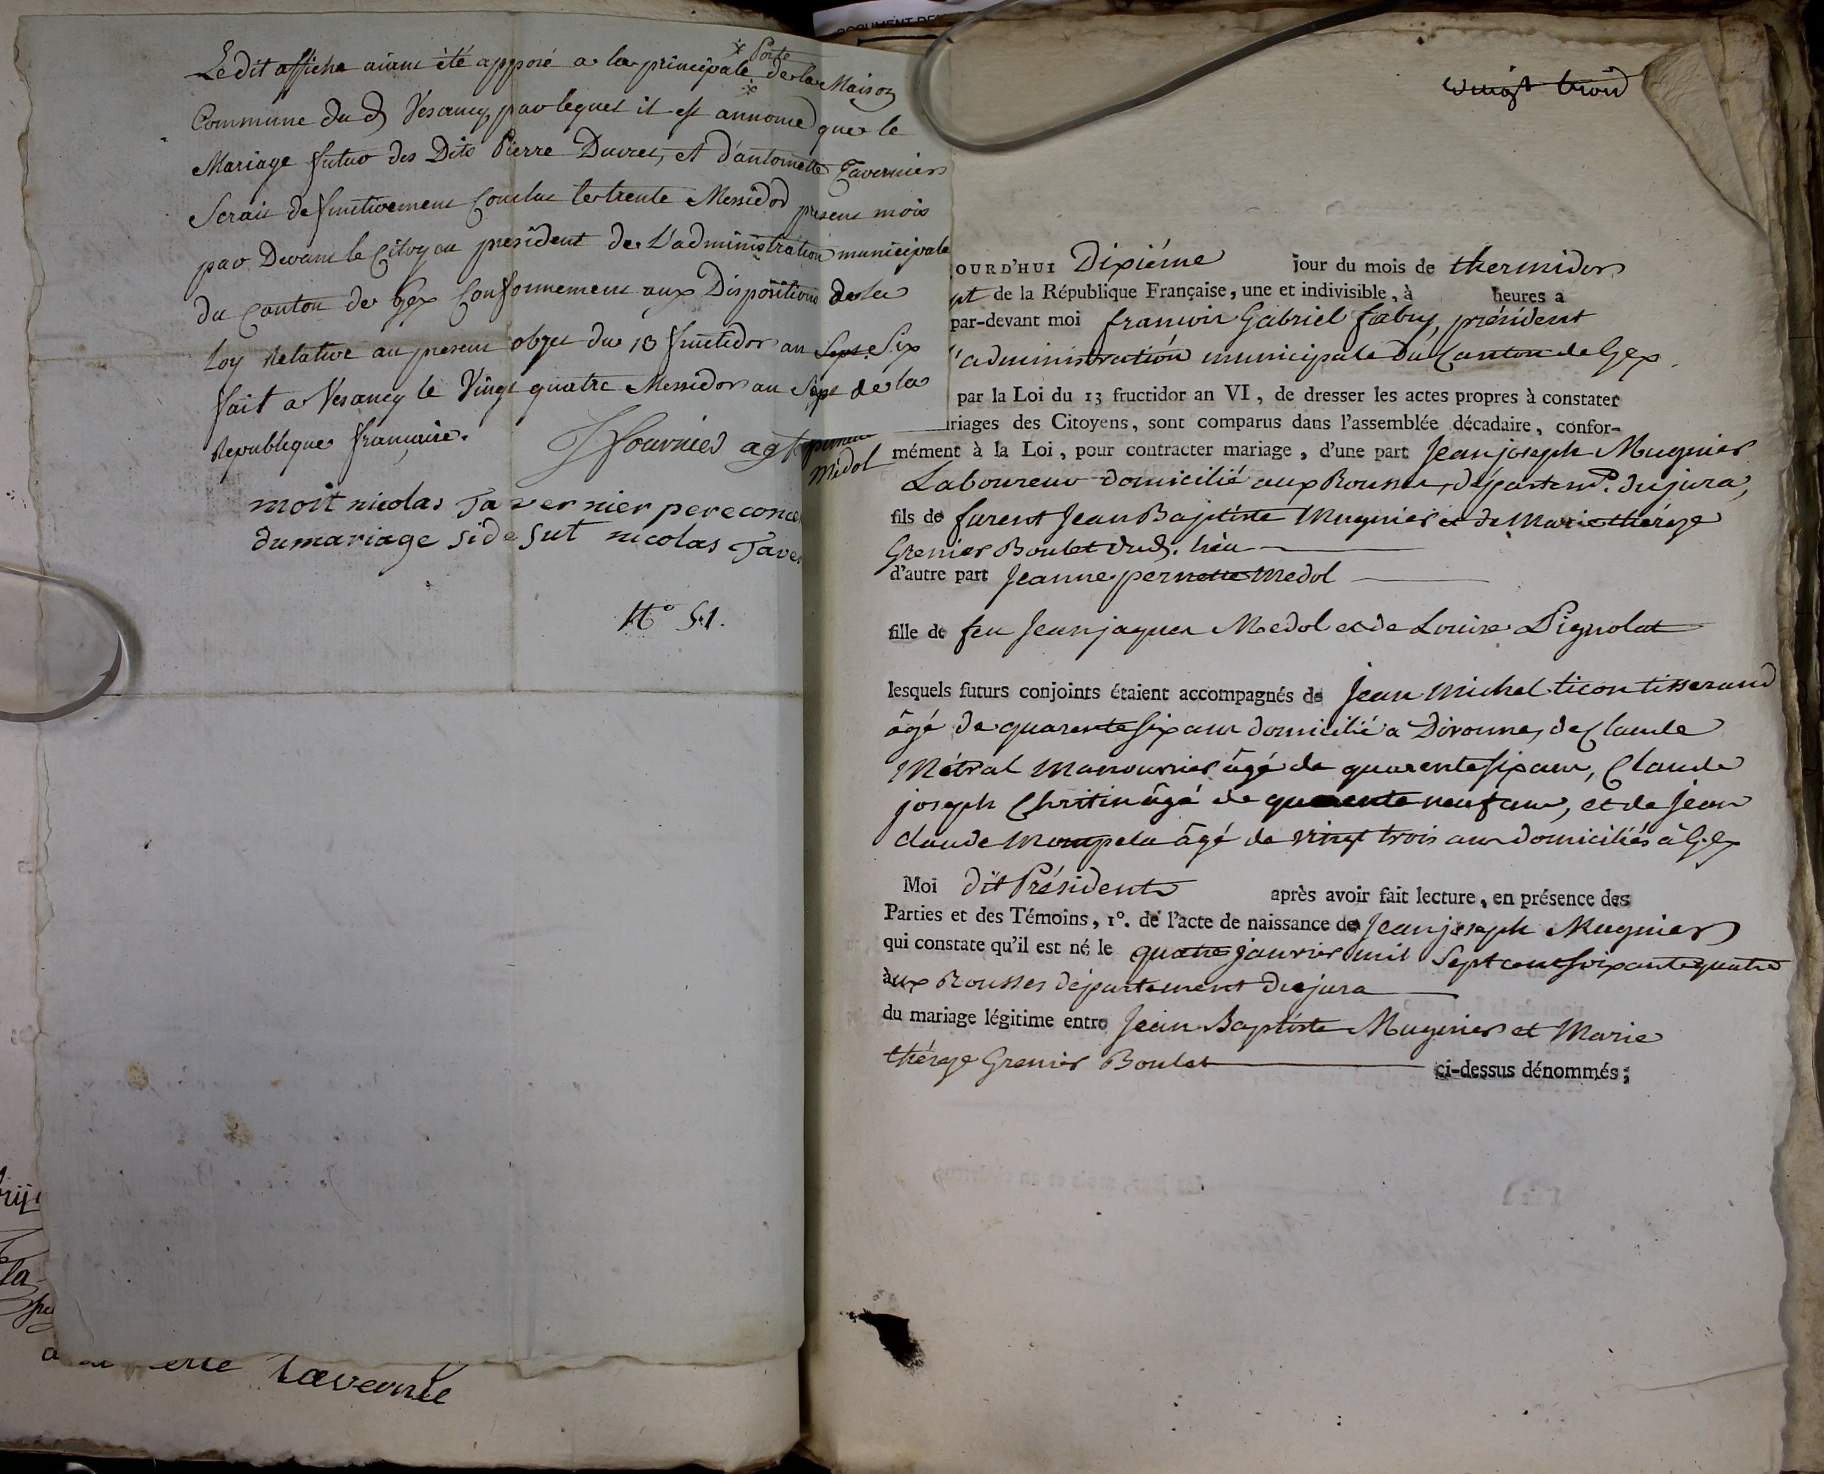 Le dit affiche aiant été apposé a la principale * Porte * de la Maison
Commune du d Vesancy, par lequel il est annoncé que le
Mariage futur des Dits Pierre Ducret, et d'antoinette Tavernier
Serait définitivement Conclut le trente Messidor présent mois
par Devant le Citoyen président de L'administration municipale
du Canton de Gex Conformement aux Dispositions de la
Loy Relative au present objet du 13 fructidor an Sept Six
fait a Vesancy le Vingt quatre Messidor an Sept de la
Republique française.
J fournier agt
moit nicolas Tavernier pere
du mariage si de sut nicolas Tave
N° 51.
Medol
Taverniee
vingt trois
OURD'HUI Dixiéme jour du mois de thermidor
pt de la République Française, une et indivisible, à heures a
par-devant moi francois Gabriel fabry, président
l'administration municipale du Canton de Gex.
par la Loi du 13 fructidor an VI, de dresser les actes propres à constater
riages des Citoyens, sont comparus dans l'assemblée décadaire, confor-
mément à la Loi, pour contracter mariage, d'une part Jean joseph Mugnier
Laboureur domicilié aux Rousses, départemt. du jura,
fils de furent Jean Baptiste Mugnier et de Marie théreze
Grenier Boulet dud. lieu
d'autre part Jeanne pernette Medol
fille de feu Jean jaques Medol et de Louise Pignolat
lesquels futurs conjoints étaient accompagnés de Jean Michel ticon tisserand
âgé de quarente six ans domicilié a Divonne, de Claude
Métral Manouvrier âgé de quarente six ans, Claude
joseph Chritin âgé de quarente neuf ans, et de Jean
claude Mompela âgé de vingt trois ans domiciliés à Gex
Moi dit Président après avoir fait lecture, en présence des
Parties et des Témoins, 1°. de l'acte de naissance de Jean joseph Mugnier
qui constate qu'il est né le quatre janvier mil Sept cent soixante quatre
aux Rousses département du jura
du mariage légitime entre Jean Baptiste Mugnier et Marie
thérèze Grenier Boulet ci-dessus dénommés;